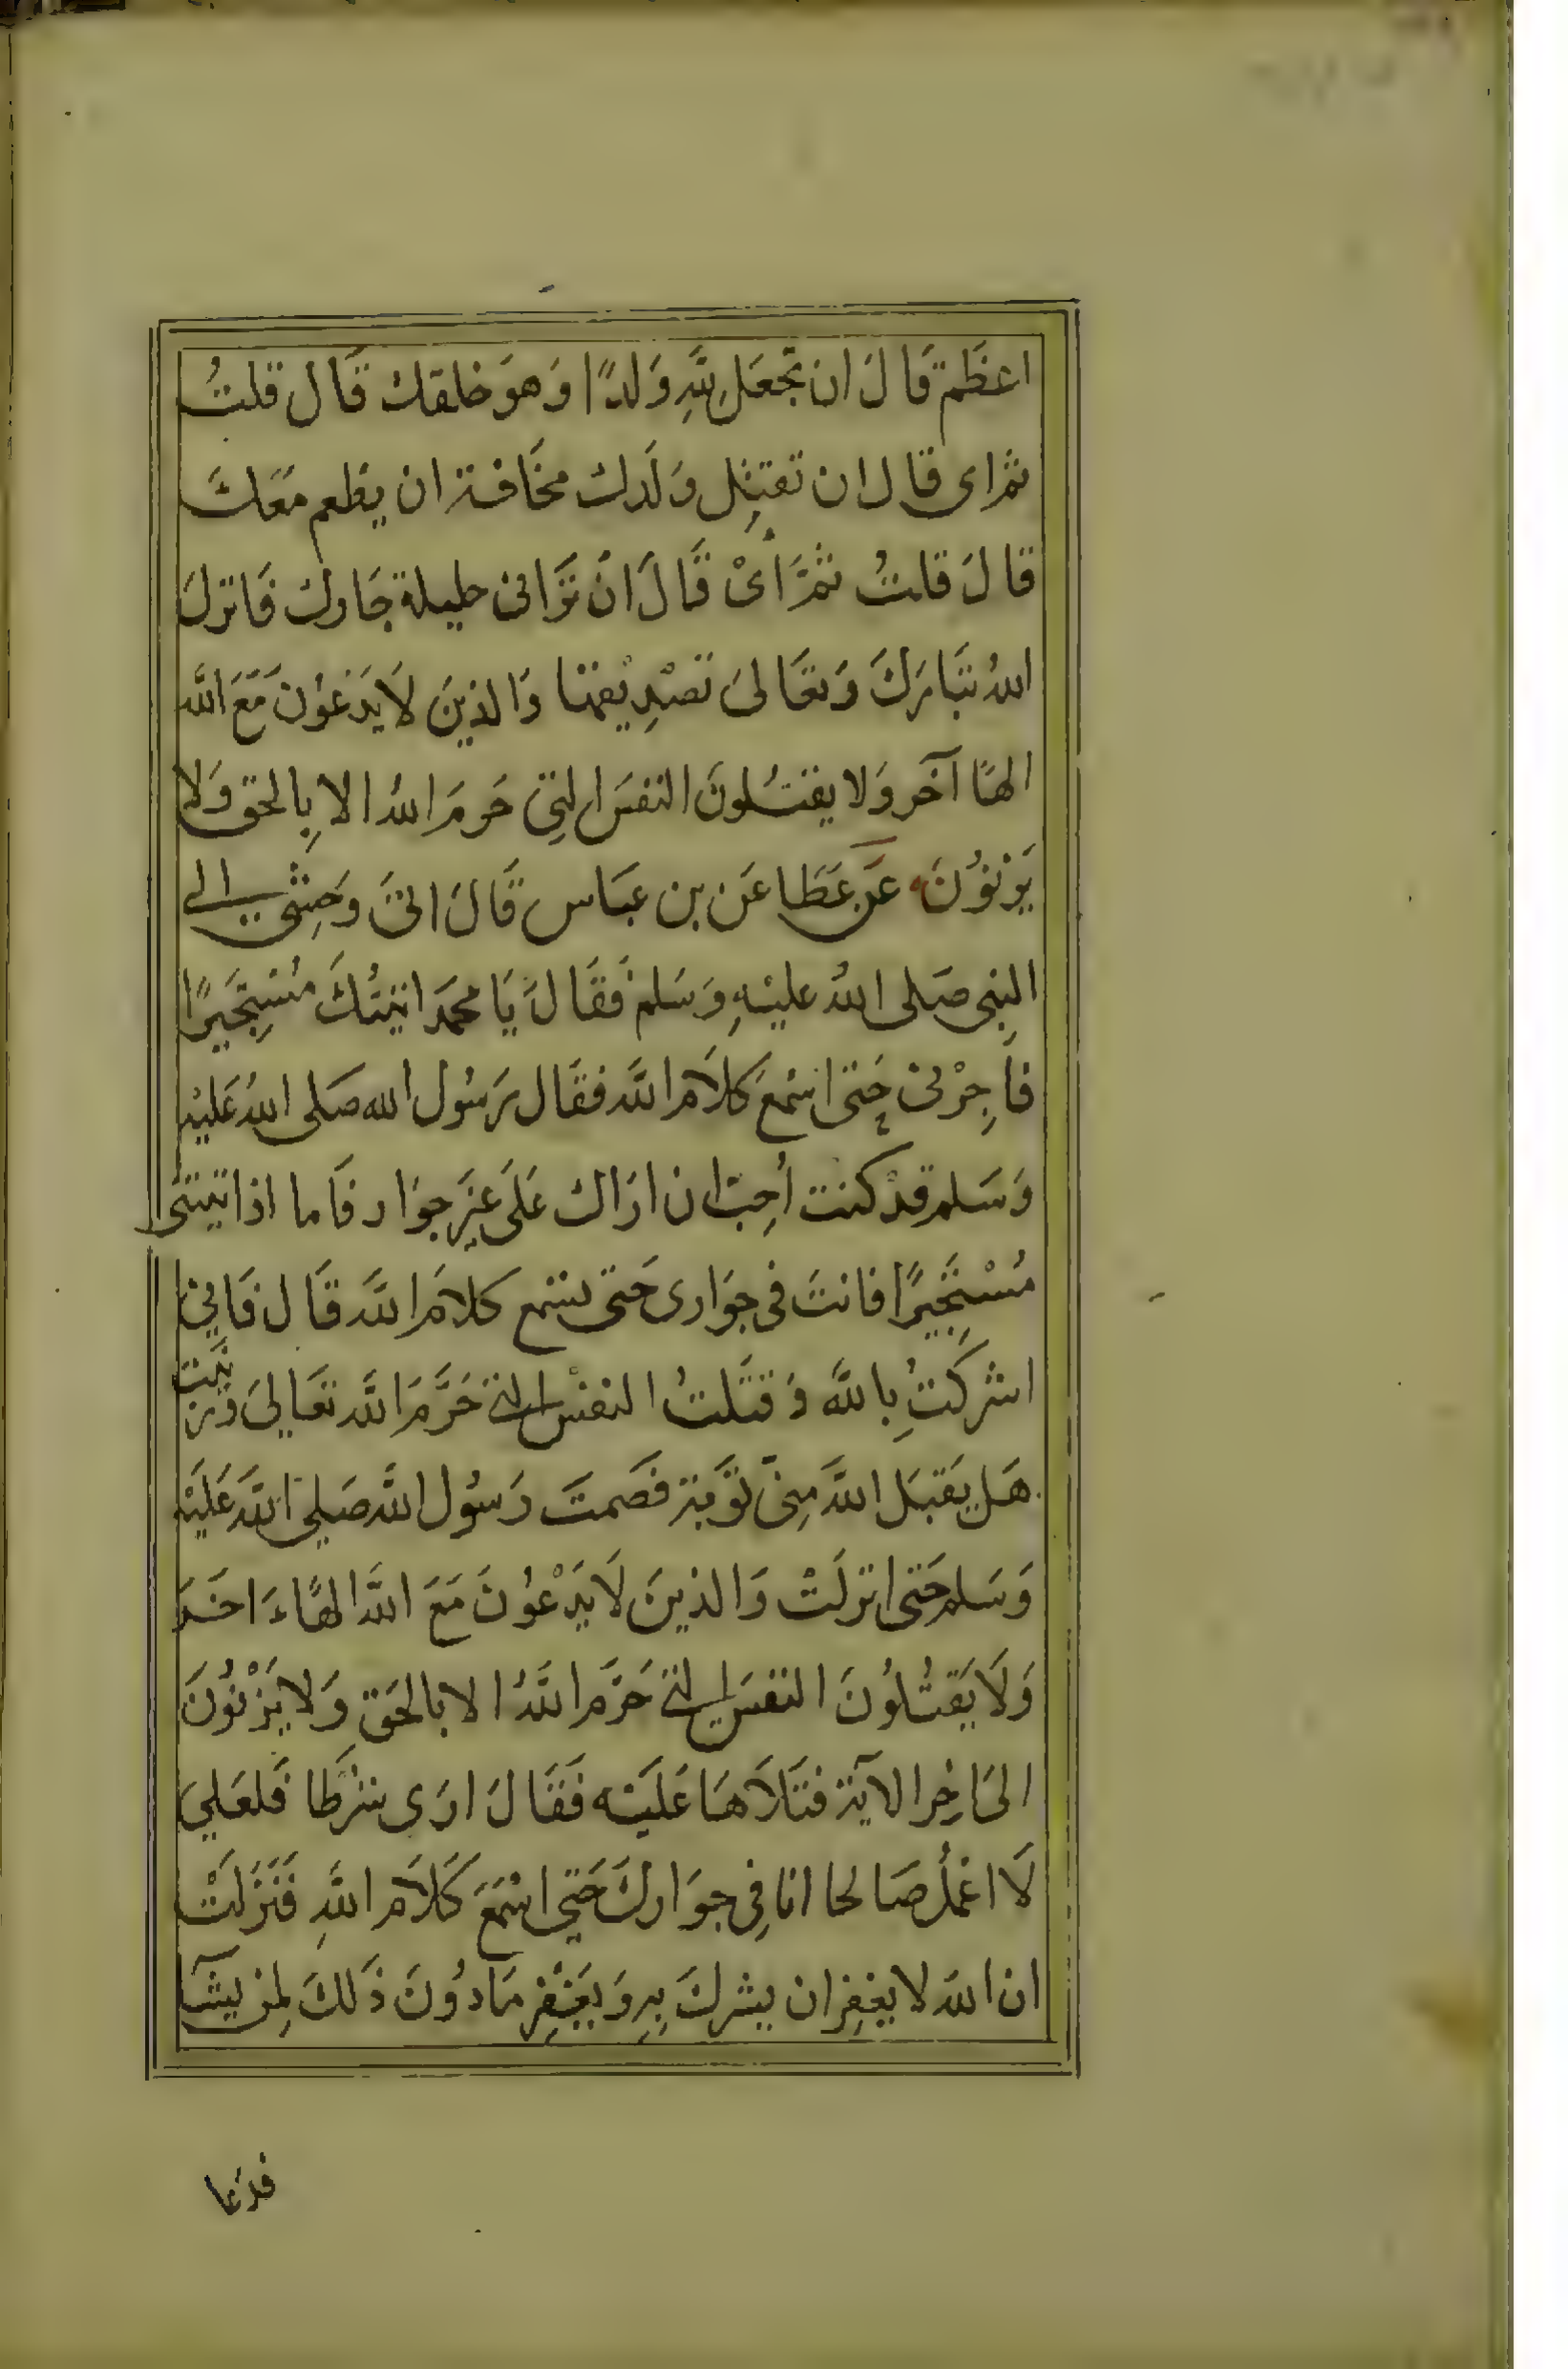 اعظَم قَالَ ان تجعَل لِلَّهِ وَلدًا وَهوَ خلقك قَال قلتُ
ثم اى قال ان تقتِل وَلَدك مخَافة ان يطعم مَعَكَ
قالَ قلتُ ثمَّ اىْ قَالَ انْ تَزانى حليلة جَارك فَانزلَ
اللهُ تبَارَكَ وَتعَالىَ تصْدِيْقهَا وَالذينَ لاَ يَدْعُوْنَ مَعَ اللَّه
الهًا آخَر وَلا يقتُلونَ النفسَ التِى حَرمَ اللهُ الا بِالحق وَلا
يَزنوُنَ عَن عَطَا عَن بن عبَاس قَالَ اتىَ وَحِشْى الى
النبِى صَلى اللهُ عليْهِ وَسَلم فَقَالَ يَا محمَد اتيتُكَ مُسْتِجَيرًا
فاَجِرْنى حَتى اسْمعَ كلاَم اللَّه فقَال رَسُول الله صَلى اللهُ عَليْه
وَسَلم قدْ كنت اُحِبّ ان ارَاك عَلَى غيَر جوَار فَاما اذا تيتنى
مُسْتِجَيرًا فانتَ فى جوَارى حَتى تسمع كلاَمَ اللَّه قَال فَانِى
اشركتُ بِاللَّه وَ قتَلتُ النفسْ التى حَرَّمَ اللَّه تعَالىَ وَزنَيت
هَل يَقبَل اللَّهَ مِنىّ توَبَة فصَمتَ رَسُول اللَّه صَلى اللَّهَ عَلَيْه
وَسَلم حَتى انزلَتْ وَالذينَ لَا يَدْعُوْنَ مَعَ اللَّه الهًاءَ اخَرَ
وَلَا يَقتُلوُنَ النفسَ التى حَرَّم اللَّهُ الا بالحَق وَلا يَزْنُوْنَ
الىَ اخِر الآية فتَلاَهَا عَلَيْه فَقَالَ ارَى شرطًا فَلعَلىَ
لَا اعْملُ صَالحا انا فِى جوَاركَ حَتى اسْمَعَ كَلاَم اللَّهِ فَنَزَلَتْ
ان اللهَ لا يغفِر ان يشركَ بِهِ وَ يَغْفِر مَا دوُنَ ذَلكَ لِمن يشآ
فدَعا